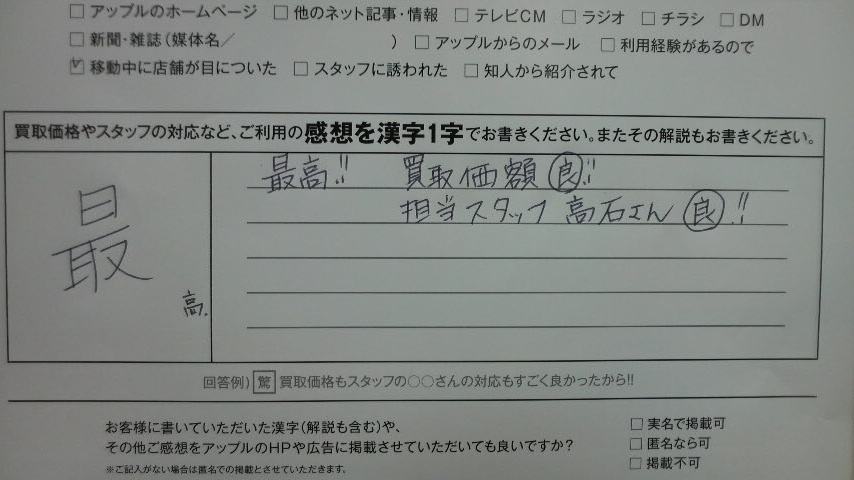 □ アップルのホームページ □ 他のネット記事・情報 □ テレビCM □ ラジオ □ チラシ □ DM
□ 新聞・雑誌(媒体名／ ) □ アップルからのメール □ 利用経験があるので
☑ 移動中に店舗が目についた □ スタッフに誘われた □ 知人から紹介されて
買取価格やスタッフの対応など、ご利用の感想を漢字1字でお書きください。またその解説もお書きください。
最高.
最高!! 買取価額 良!!
担当スタッフ 高石さん 良!!
回答例) 驚 買取価格もスタッフの○○さんの対応もすごく良かったから!!
お客様に書いていただいた漢字(解説も含む)や、
その他ご感想をアップルのHPや広告に掲載させていただいても良いですか?
※ご記入がない場合は匿名での掲載とさせていただきます。
□ 実名で掲載可
□ 匿名なら可
□ 掲載不可